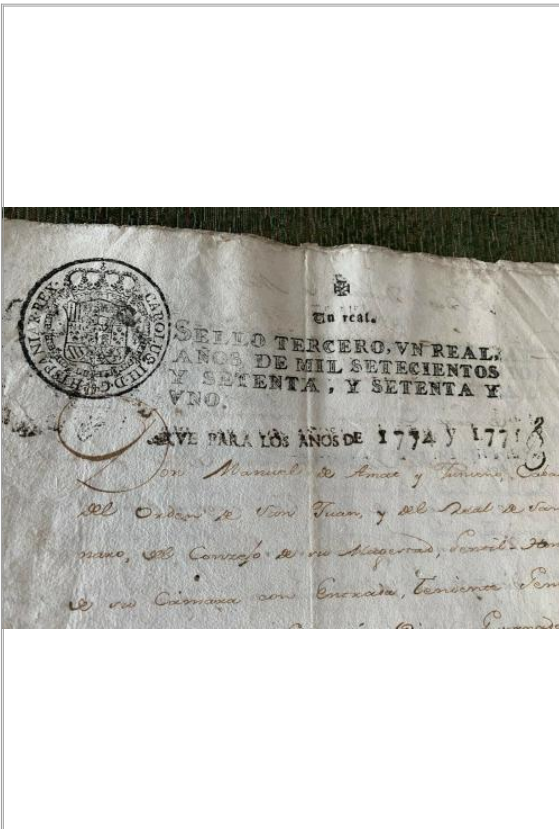 CAROLUS III D G HISPANIAR REX
Un real.
SELLO TERCERO, VN REAL,
AÑOS DE MIL SETECIENTOS
Y SETENTA, Y SETENTA Y
VNO.
RVE PARA LOS AÑOS DE 1774 Y 177
Don Manuel de Amat y Cav
del Orden de Sn Juan, y del Real de San
naro, del Consejo de su Magestad, Gentil
de su Camara con Entrada, Teniente Gen